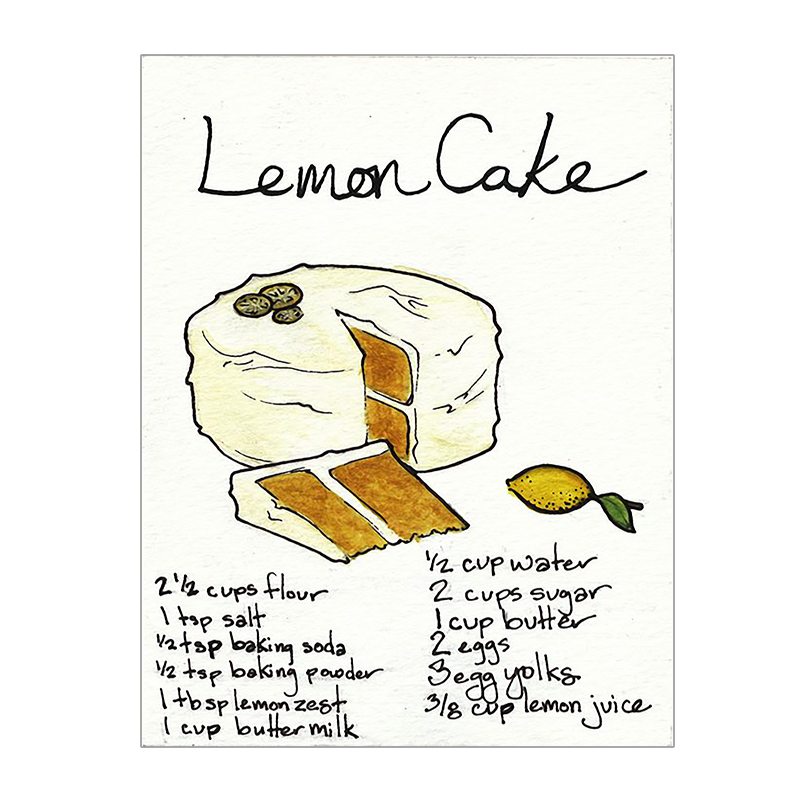 Lemon Cake
2 1/2 cups flour
1 tsp salt
1/2 tsp baking soda
1/2 tsp baking powder
1 tbsp lemon zest
1 cup buttermilk
1/2 cup water
2 cups sugar
1 cup butter
2 eggs
3 egg yolks
3/8 cup lemon juice